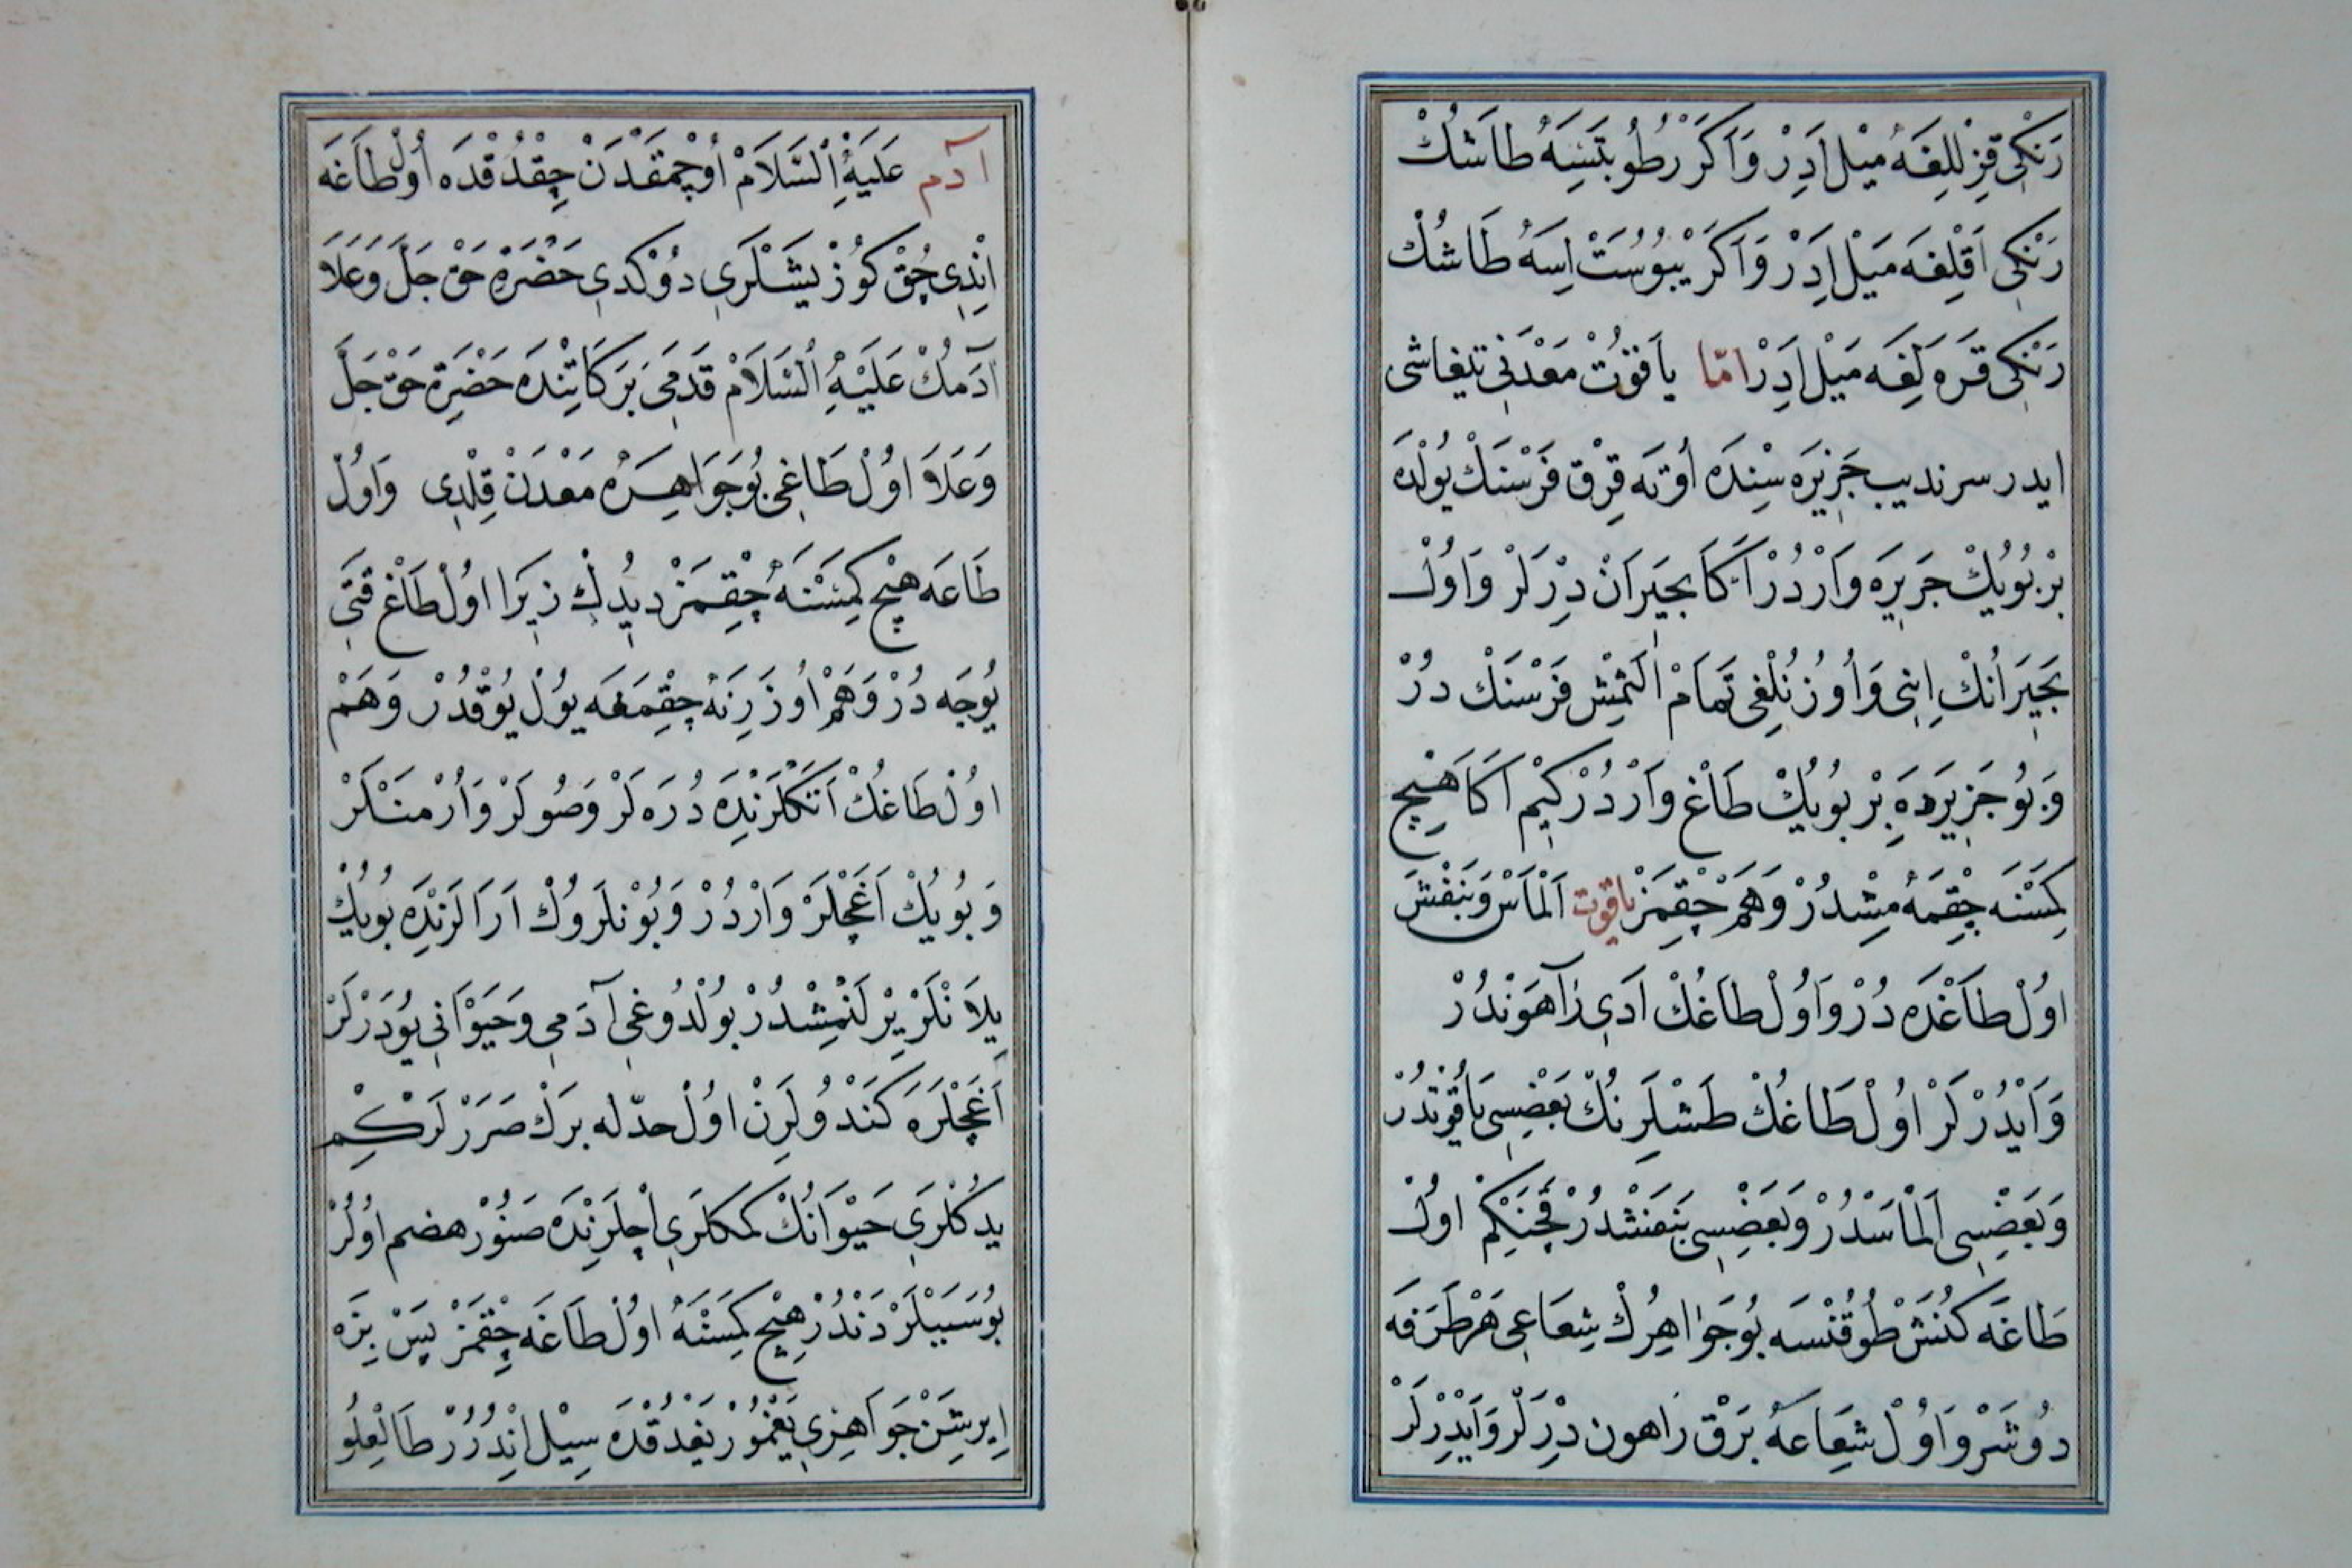 رَنْكِی قِزِللِغَهٔ مَیْل اَدِرْ وَاَكَرْ رطُوبَتَسِهٔ طَاشُكْ
رَنْكِی اَقْلِغَه مَیْل اِدَرْ وَاَكَرْ یُبُوسَتْ اِسَهٔ طَاشُكْ
رَنْكِی قَرَه لِغَه مَیْل اِدَرْ امّا یاَقوُتْ مَعْدَنِی تیفاشی
ایدر سرندیب جَزِیرَه سِنْدَه اُوتَه قِرْق فَرْسَنْكْ یُولْدَه
بْر بُویُكْ جَزِیرَه وَارْدُرْ اَكَا بَجِیَرانْ دِرْلَرْ وَاوُلْ
بَجِیَرانُكْ اِینِی وَاُوزُنْلِغِی تَمامْ اَلْتْمِشْ فَرْسَنْكْ دُرْ
وَبُو جَزِیرَدَهِ بْر بُویُكْ طَاغْ وَارْدُرْ كِیمْ اَكَا هِیچ
كِمَسْنَه چِقْمَهٔ مِشْدُرْ وَهَمْ چِقْمَزْ یاقوت اَلْمَاسْ وَبَنَفْشْ
اوُلْ طَاغْدَه دُرْ وَاوُلْ طَاغُكْ اَدِی رَاهَوَنْدُرْ
وَایْدُرْلَرْ اوُلْ طَاغُكْ طَشْلَرِنُكْ بَعْضِسِی یَاقُوتْدُرْ
وَبَعْضِسِی اَلْمَاسْدُرْ وَبَعْضِسِی بَنَفْشْدُرْ قَچَنْكِمْ اوُلْ
طَاغَه كُنَشْ طُوقُنْسَه بُوجَوَاهِرُكْ شِعَاعِی هَرْ طَرَفَه
دُوشَرْ وَاوُلْ شِعَاعَهٔ بَرْق رَاهون دِرْلَرْ وَایْدِرْلَرْ
آدم عَلَیْهِ ٱلسَّلَامْ اُوچْمَقْدَنْ چِقْدُقْدَه اُولْ طَاغَه
اِنْدِی چُقْ كُوزْ یَشْلَرِی دُوكْدِی حَضْرَةِ حَقْ جَلَّ وَعَلَا
اٰدَمُكْ عَلَیْهِ ٱلسَّلَامْ قَدَمِی بَرَكَاتِنْدَه حَضْرَةِ حَقْ جَلَّ
وَعَلَا اوُلْ طَاغِی بُوجَوَاهِرَه مَعْدَنْ قِلْدِی وَاوُلْ
طَاغَه هِیچ كِمَسْنَهٔ چِقْمَزْ دِیدُكْ زِیرَا اوُلْ طَاغْ قَتِی
یُوجَه دُرْ وَهَمْ اُوزَرِنَهٔ چِقْمَغَه یُولْ یُوقْدُرْ وَهَمْ
اوُلْ طَاغُكْ اَتَكْلَرِنْدَه دُرَه لَرْ وَصُولَرْ وَاُرْمَنْلَرْ
وَبُویُكْ اَغَجْلَرْ وَارْدُرْ وَبُونْلَروُكْ اَرَالَرِنْدَه بُویُكْ
یِلَانْلَرْ یِرْلَنْمِشْدُرْ بُولْدُوغِی آدَمِی وَحَیَوْانِی یُودَرْلَرْ
اَغَجْلَرَه كَنْدُولَرِنْ اوُلْ حدّله بَرْكْ صَرَرْلَرْكِم
یِدكْلَرِی حَیْوَانُكْ كَمَكْلَرِی اِچْلَرِنْدَه صَنُورْ هضم اوُلُرْ
بُوسَبَبْلَرْدَنْدُرْ هِیچ كِمَسْنَهٔ اوُلْ طَاغَه چِقْمَزْ پَسْ بِزَه
اِیرِشَنْ جَوَاهِرِی یَغْمُورْ یَغْدُقْدَه سِیْل اِنْدُرُرْ طَالْعِلُو